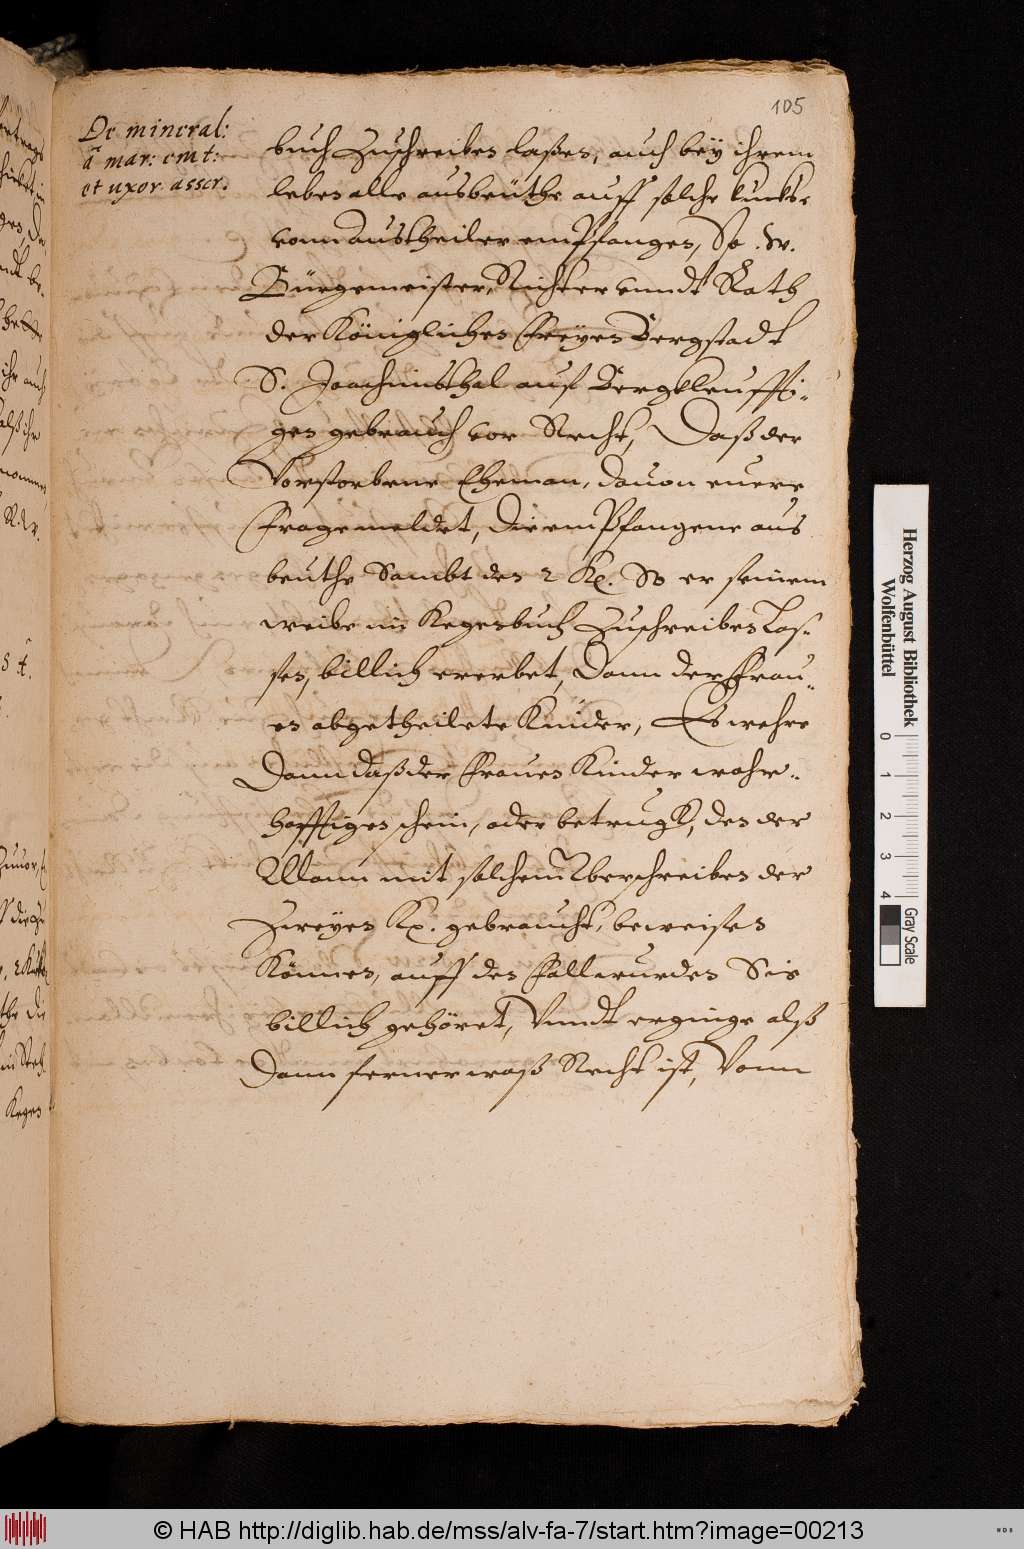 105
De mineral:
à mar: emt:
et uxor asscr.
buch Zuschreiben laßen, auch bey ihrem
leben alle ausbeüthe auff solche kuckse
vonn Austheiler empfangen, So
Bürgemeister, Richter vnndt Rath
der Königlichen Freyen Bergstadt
S. Joachimsthal auf Bergkleuffti-
gen gebrauch vor Recht, Daß der
Vorstorbene Eheman, dauon euere
Frage meldet, die empfangene aus
beuthe Sambt den 2 Kx. So er seinem
weibe im Kegenbuch Zuschreiben Las-
sen, billich ererbet, Dann der Frau-
en abgetheilete Kinder, Es wehre
Dann daß der Frauen Kinder wahr-
hafftigen schein, oder betrugk, den der
Mann mit solchem Vberschreiben der
Zweyen Kx. gebraucht, beweisen
Können, auff den Fall wurden Sie
billich gehöret, Vnndt erginge alß
Dann ferner waß Recht ist, Vonn
Herzog August Bibliothek
Wolfenbüttel
0 1 2 3 4
Gray Scale
© HAB http://diglib.hab.de/mss/alv-fa-7/start.htm?image=00213